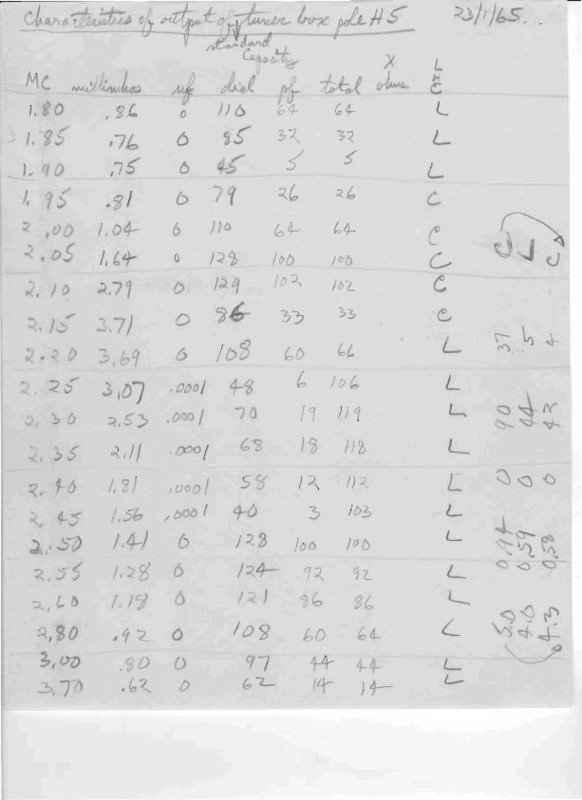 Characteristics of output of tuner box pole #5 23/1/65...
standard
Capacity
X L
MC millimhos uf dial pf total ohms C
1.80 .86 0 110 64 64 L
1.85 .76 0 85 32 32 L
1.90 .75 0 45 5 5 L
1.95 .81 0 79 26 26 C
2.00 1.04 0 110 64 64 C
2.05 1.64 0 128 100 100 C
2.10 2.79 0 129 102 102 C
2.15 3.71 0 86 33 33 C
2.20 3.69 0 108 60 66 L
2.25 3.07 .0001 48 6 106 L
2.30 2.53 .0001 70 19 119 L
2.35 2.11 .0001 68 18 118 L
2.40 1.81 .0001 58 12 112 L
2.45 1.56 .0001 40 3 103 L
2.50 1.41 0 128 100 100 L
2.55 1.28 0 124 92 92 L
2.60 1.18 0 121 86 86 L
2.80 .92 0 108 60 64 L
3.00 .80 0 97 44 44 L
3.70 .62 0 62 14 14 L
5.0 0.94 0 90 37 C
4.0 0.59 0 44 5 L
4.3 0.58 0 42 4 C